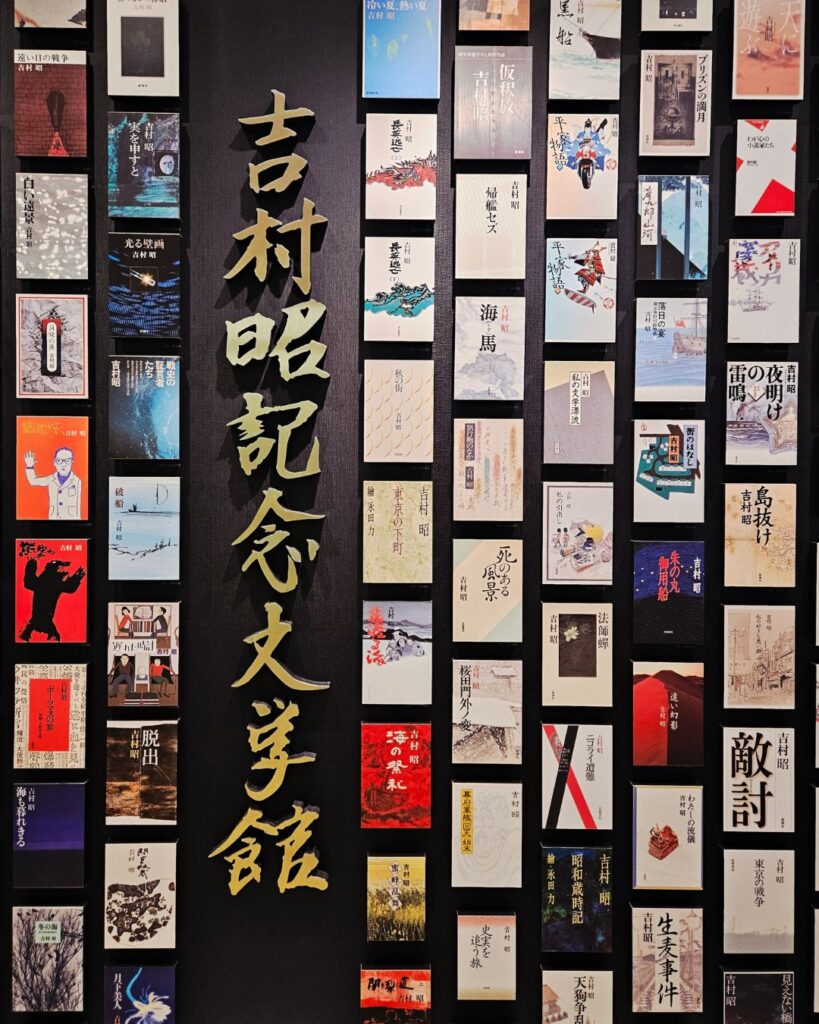 吉村昭記念文学館
遠い日の戦争
吉村 昭
白い遠景
吉村 昭
月夜の魚
吉村昭
吉村 昭
吉村 昭
ポーツマスの旗
吉村昭
海も暮れきる
吉村昭
冬の海
吉村 昭
実を申すと
吉村 昭
光る壁画
吉村 昭
戦史の証言者たち
吉村昭
破船
吉村 昭
遅れた時計
吉村 昭
脱出
吉村 昭
間宮林蔵
吉村 昭
月下美人
冷い夏、熱い夏
吉村 昭
長英逃亡
長英逃亡
秋の街
吉村 昭
吉村 昭
東京の下町
繪・永田力
花渡る海
吉村昭
吉村 昭
海の祭礼
吉村 昭
蜜蜂乱舞
闇を裂く道 上
吉村 昭
仮釈放
吉村 昭
吉村 昭
帰艦セズ
海馬
吉村 昭
旅行鞄のなか
吉村 昭
死のある風景
吉村 昭
桜田門外ノ変
吉村 昭
吉村 昭
幕府軍艦回天始末
吉村 昭
史実を追う旅
黒船
平家物語
平家物語
吉村 昭
私の文学漂流
私の引出し
法師蟬
吉村 昭
ニコライ遭難
吉村 昭
吉村 昭
昭和歳時記
繪・永田力
天狗争乱
プリズンの満月
吉村 昭
吉村 昭
彦九郎山河
落日の宴
吉村 昭
街のはなし
吉村 昭
吉村 昭
朱の丸御用船
遠い幻影
吉村 昭
わたしの流儀
吉村 昭
生麦事件
吉村昭
天に遊ぶ
吉村 昭
わが心の小説家たち
吉村 昭
アメリカ彦蔵
吉村 昭
夜明けの雷鳴
島抜け
吉村 昭
吉村 昭
敵討
吉村 昭
東京の戦争
見えない橋
吉村 昭